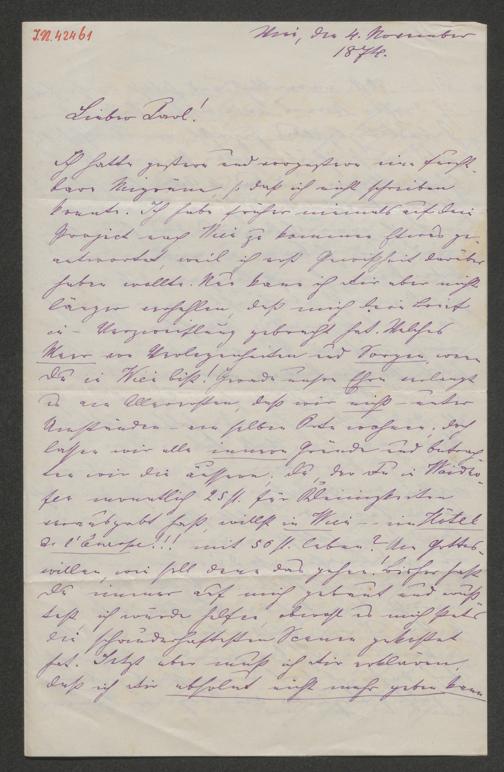 I.N. 42461
Wien, den 4. November
1874.
Lieber Carl!
Ich hatte gestern und vorgestern eine furcht-
bare Migräne, so daß ich nicht schreiben
konnte. Ich habe früher niemals auf dein
Project nach Wien zu kommen Etwas ge-
antwortet, weil ich erst Gewißheit darüber
haben wollte. Nun kann ich dir aber nicht
länger verhehlen, daß mich dein Brief
in Verzweiflung gebracht hat. Welches
Meer von Verlegenheiten und Sorgen, wenn
Du in Wien bist! Gerade unsre Ehre verlangt
es am Allerersten, daß wir nicht unter
Umständen am selben Orte wohnen, doch
lassen wir alle innern Gründe und betrach-
ten wir die äußern. Du, der Du in Waidho-
fen monatlich 25 fl. für Kleinigkeiten
verausgabt hast, willst in Wien – im Hôtel
de l'Europe!!! mit 50 fl. leben? Um Gottes-
willen, wie soll denn das gehen! Bisher hast
Du immer auf mich gebaut und wuß-
test, ich würde helfen, obwohl es mich stets
die schauderhaftesten Scenen gekostet
hat. Jetzt aber muß ich dir erklären,
daß ich dir absolut nicht mehr geben kann